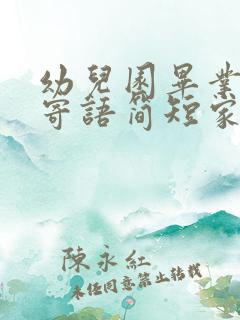 幼兒園畢業
寄語簡短家
陳永紅
未經同意禁止轉載